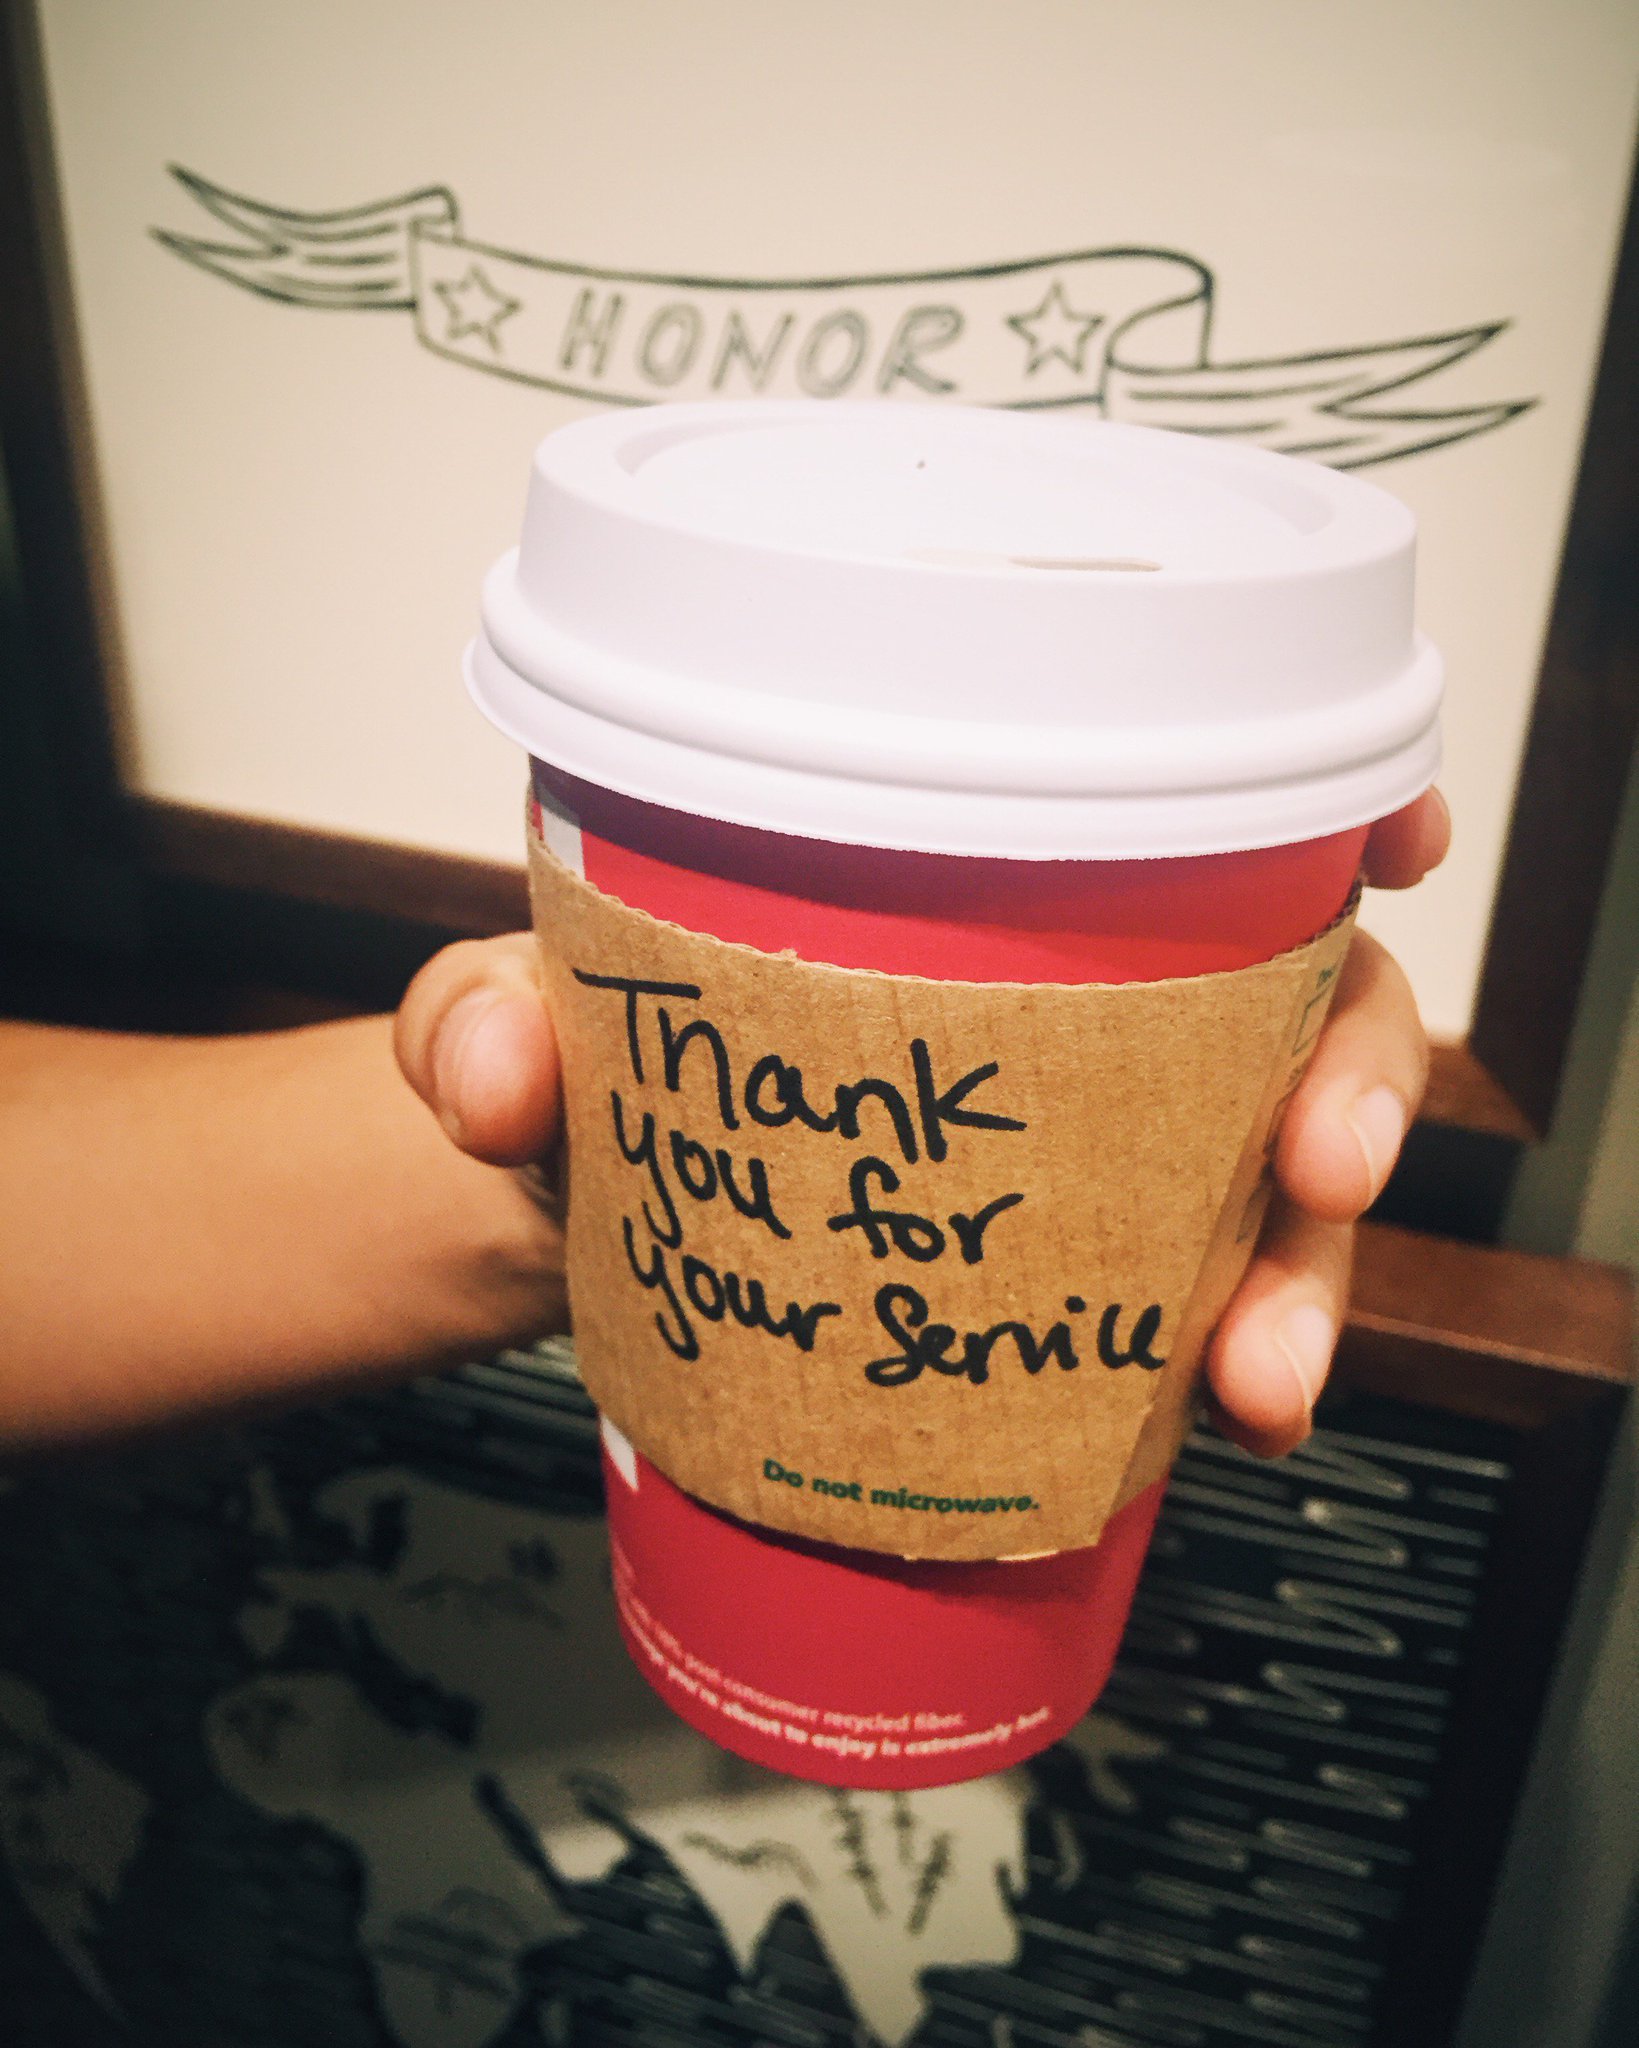 HONOR
Thank
you for
your Service
Do not microwave.
post-consumer recycled fiber.
you're about to enjoy is extremely hot.